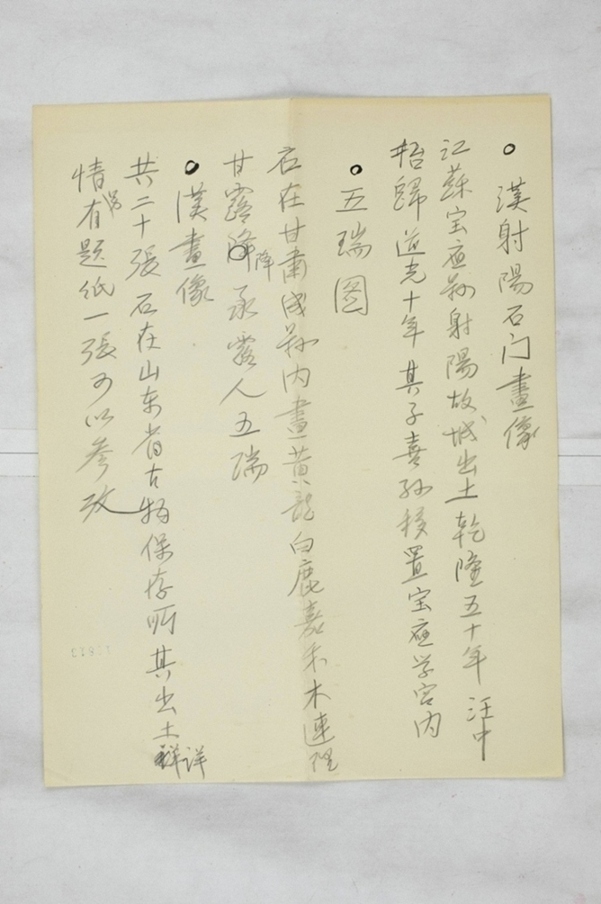 漢射陽石门畫像
江蘇宝应县射陽故城出土乾隆五十年 汪中
招歸 道光十年 其子喜孙移置宝应学宫内
五瑞图
石在甘肅成县内畫黄龍白鹿嘉禾木連理
甘露降 降 承露人五瑞
漢畫像
共二十張 石在山东省古物保存所 其出土 詳
情 有題纸一張可以参攷